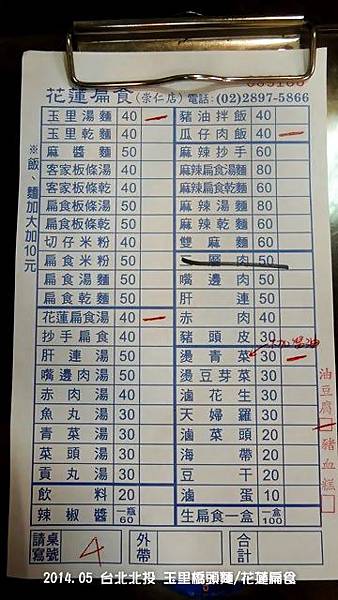 花蓮扁食(崇仁店)電話:(02)2897-5866
※飯、麵加大加10元
玉里湯麵 40 一
玉里乾麵 40
麻醬麵 50
客家板條湯 50
客家板條乾 50
扁食板條湯 50
扁食板條乾 50
切仔米粉 40
扁食米粉 50
扁食湯麵 50
扁食乾麵 50
花蓮扁食湯 40 一
抄手扁食 40
肝連湯 50
嘴邊肉湯 50
赤肉湯 40
魚丸湯 30
青菜湯 30
菜頭湯 30
貢丸湯 30
飲料 20
辣椒醬 一瓶60
豬油拌飯 40
瓜仔肉飯 40 一
麻辣抄手 60
麻辣扁食湯麵 80
麻辣扁食乾麵 80
麻辣湯麵 80
麻辣乾麵 60
雙麻麵 60
肉 50
嘴邊肉 50
肝連 50
赤肉 40
豬頭皮 30
燙青菜 30 一
燙豆芽菜 30
滷花生 30
天婦羅 30
滷菜頭 20
海帶 20
豆干 20
滷蛋 10
生扁食一盒 一盒100
油豆腐
豬血糕
請寫桌號 4
外帶
合計
2014.05 台北北投 玉里橋頭麵/花蓮扁食